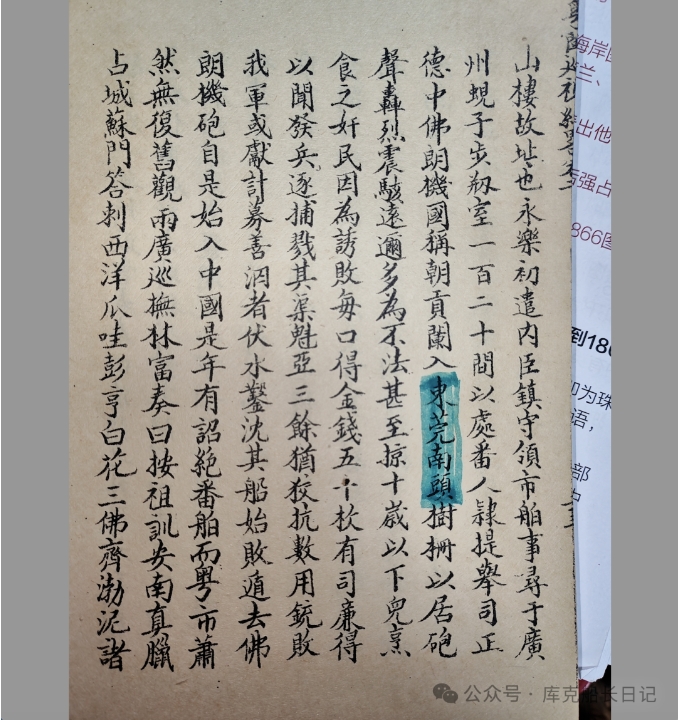 山樓故址也永樂初遣内臣鎮守領市舶事尋于廣
州蜆子步剏室一百二十間以處番人隷提舉司正
德中佛朗機國稱朝貢闌入東莞南頭樹柵以居砲
聲轟烈震駭遠邇多為不法甚至掠十歲以下兒烹
食之奸民因為誘敗每口得金錢五十校有司廉得
以聞發兵逐捕戮其渠魁亞三餘猶狡抗數用銃敗
我軍或獻計募善泅者伏水鑿沈其船始敗遁去佛
朗機砲自是始入中國是年有詔絕番舶而粤市蕭
然無復舊觀兩廣巡撫林富奏曰按祖訓安南真臘
占城蘇門答剌西洋瓜哇彭亨白花三佛齊渤泥諸
海岸
兰、
出他
强占
866图
到186
即为珠
语，
部
公众号·库克船长日记